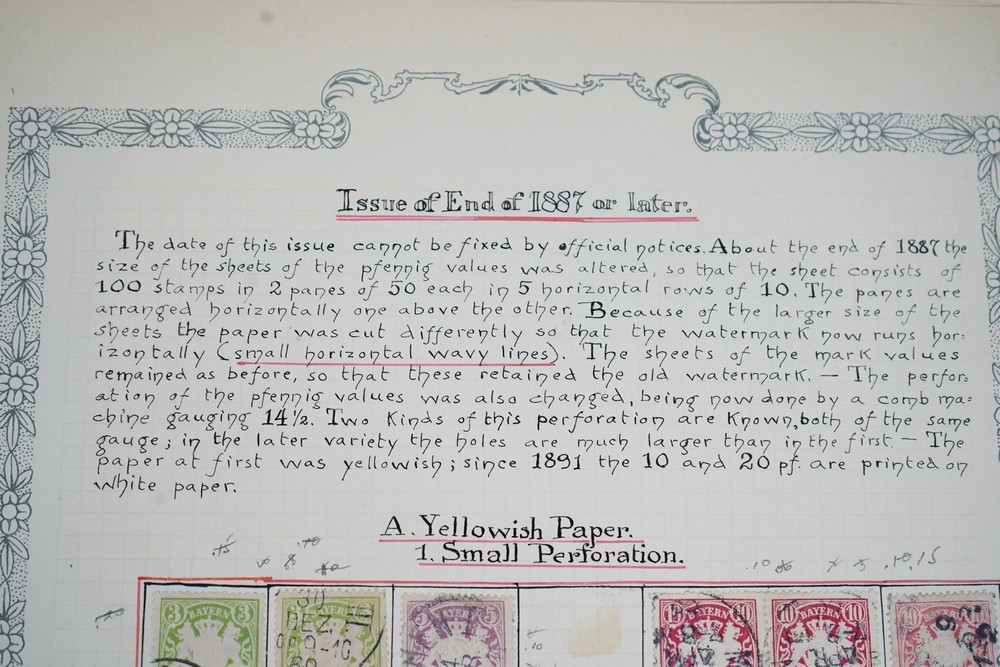 Issue of End of 1887 or later.
The date of this issue cannot be fixed by official notices. About the end of 1887 the
size of the sheets of the pfennig values was altered, so that the sheet consists of
100 stamps in 2 panes of 50 each in 5 horizontal rows of 10. The panes are
arranged horizontally one above the other. Because of the larger size of the
sheets the paper was cut differently so that the watermark now runs hor-
izontally (small horizontal wavy lines). The sheets of the mark values
remained as before, so that these retained the old watermark. — The perfor-
ation of the pfennig values was also changed, being now done by a comb ma=
chine gauging 14½. Two kinds of this perforation are known, both of the same
gauge; in the later variety the holes are much larger than in the first. — The
paper at first was yellowish; since 1891 the 10 and 20 pf. are printed on
white paper.
A. Yellowish Paper.
1. Small Perforation.
.10 .10,15
3 BAYERN 3 BAYERN BAYERN 5 10 BAYERN 10 BAYERN 10 BAYERN 10
DEZ
.10